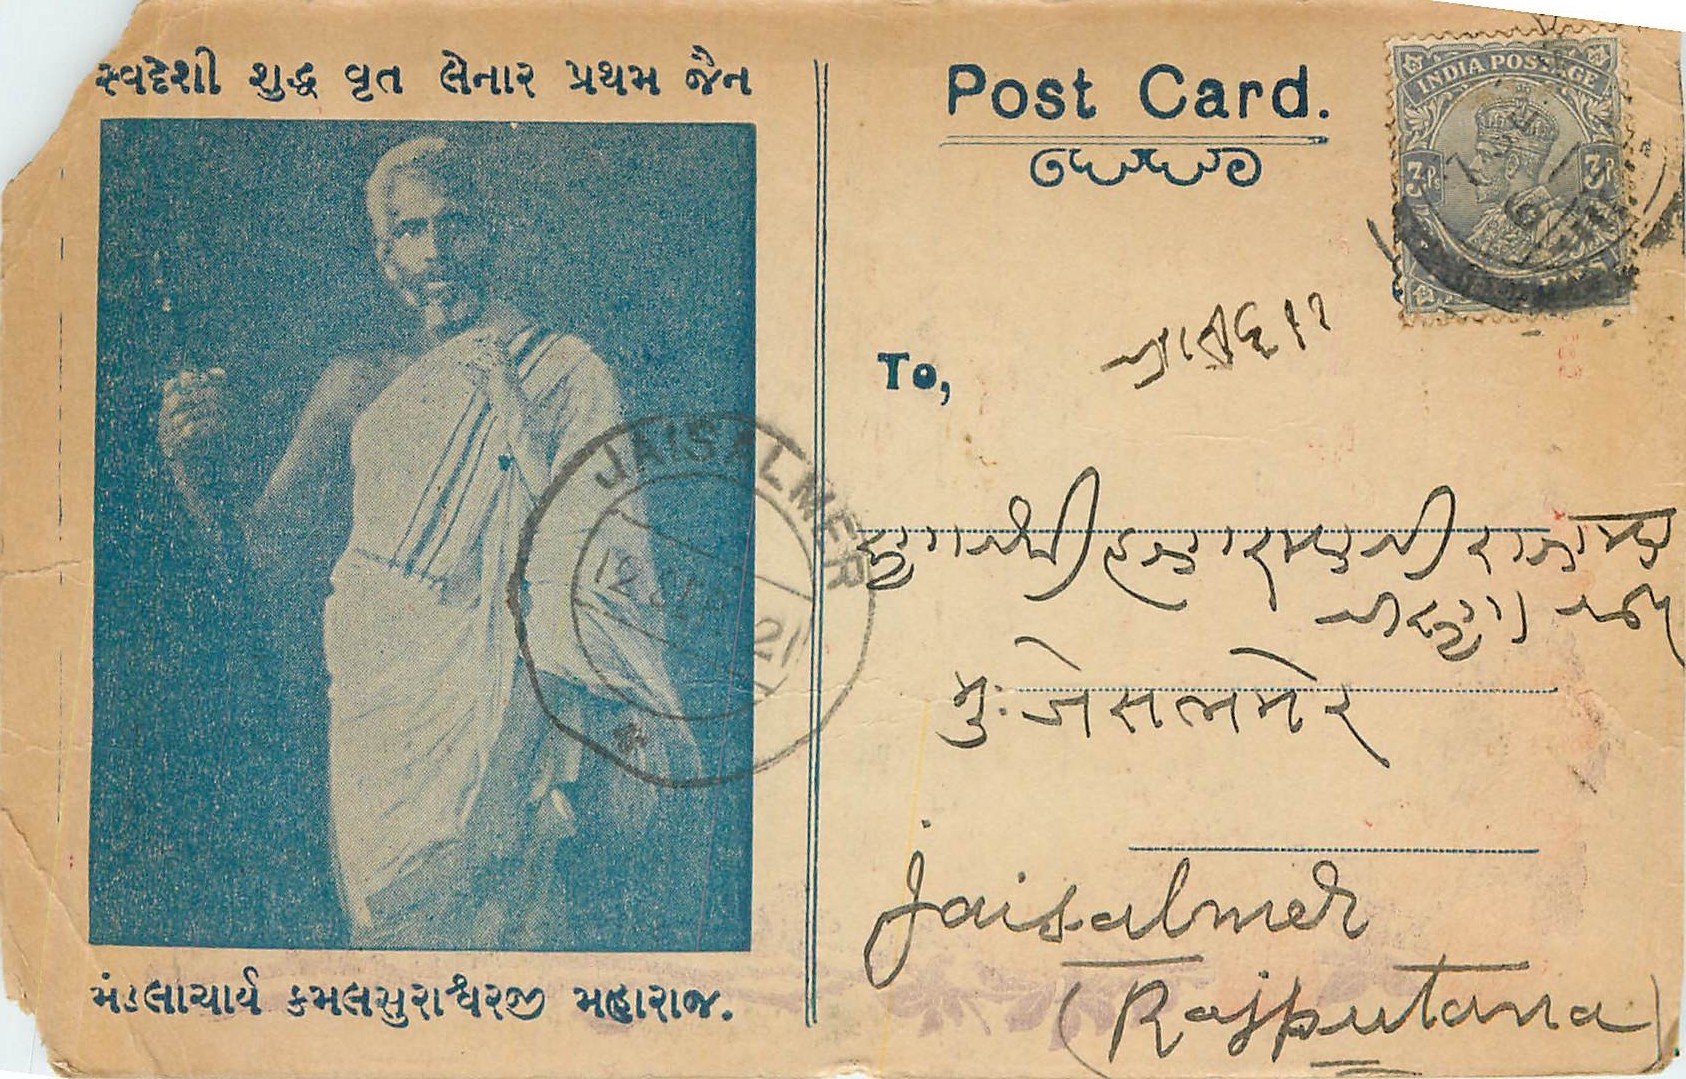 સ્વદેશી શુદ્ધ વૃત લેનાર પ્રથમ જૈન
મંડલાચાર્ય કમલસુરાશ્વરજી મહારાજ.
Post Card.
INDIA POSTAGE
3 Ps
To,
JAISALMER
12 SEP 21
મુ: જેસલમેર
Jaisalmer
(Rajputana)